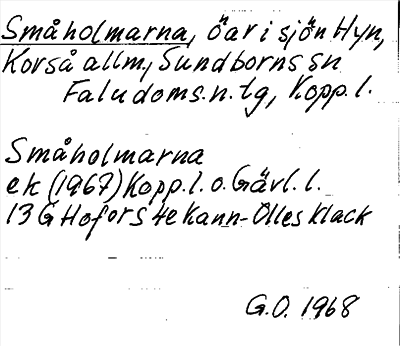 Småholmarna, öar i sjön Hyn,
Korså allm, Sundborns sn
Falu doms.n.tg, Kopp.l.
Småholmarna
ek (1967) Kopp.l. o. Gävl.l.
13 G Hofors 4e Kann-Olles klack
G.O. 1968